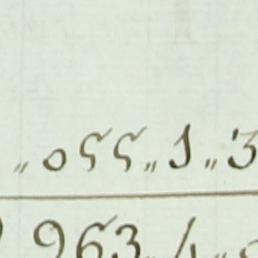 „ 055 „ 1 „ 3
963 „ 4 „